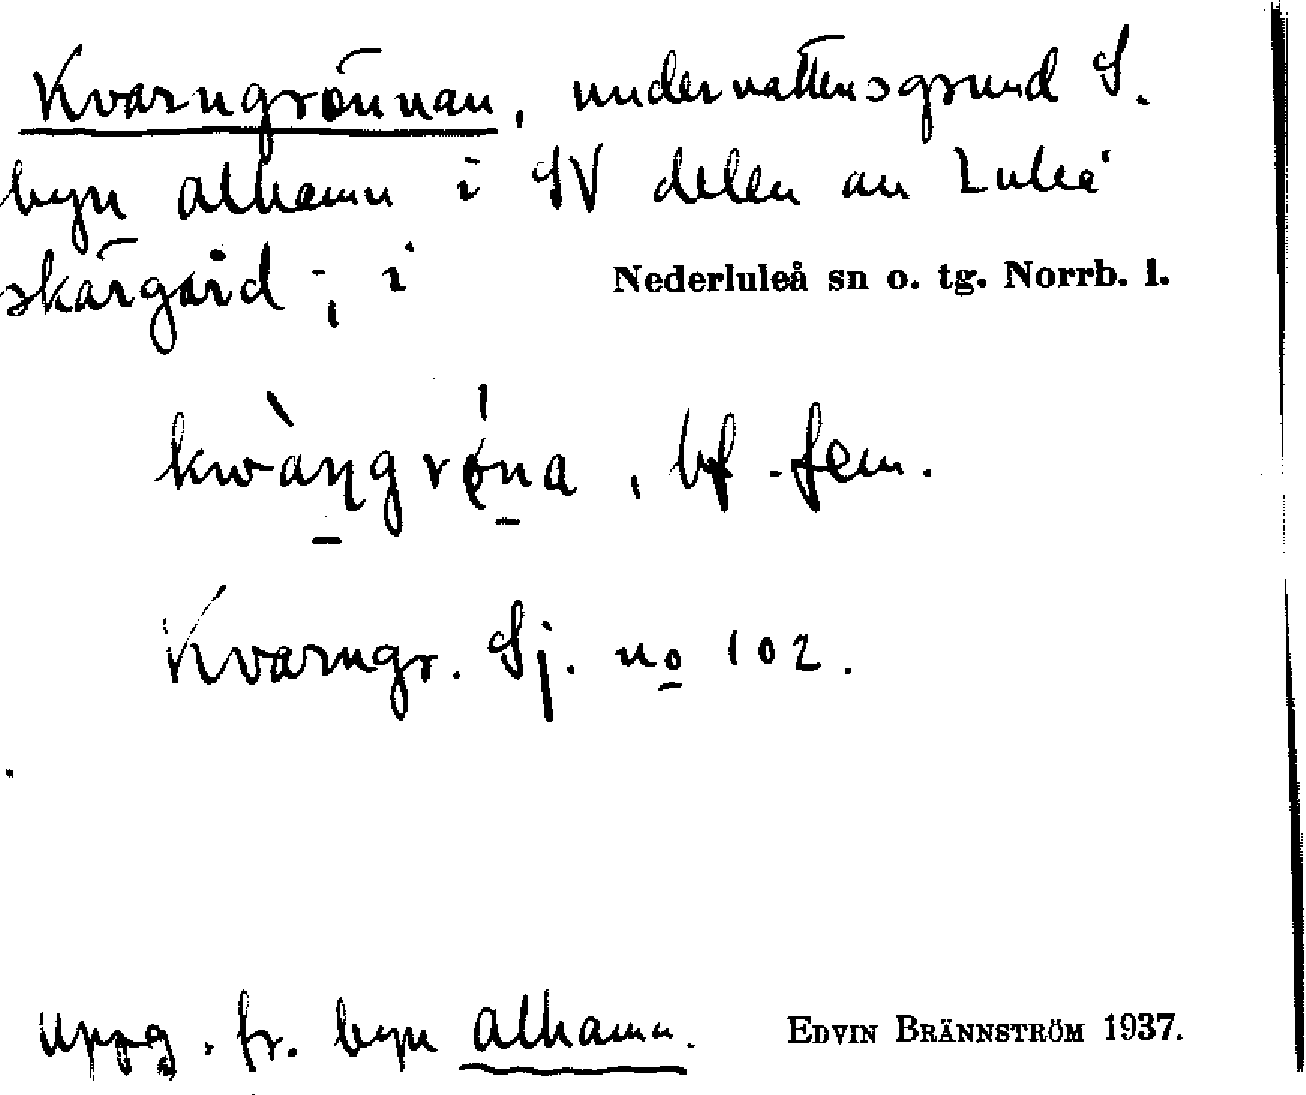 Kvarngrönnan, undervattensgrund S.
byn Alhamn i SV delen av Luleå
skärgård; i Nederluleå sn o. tg. Norrb. l.
kwàŋgrǿna, bf. fem.
Kvarngr. Sj. no 102.
Uppg. fr. byn Alhamn. EDVIN BRÄNNSTRÖM 1937.